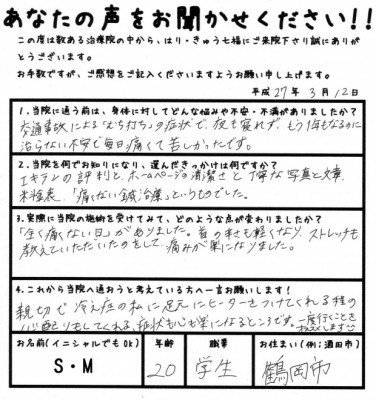 あなたの声をお聞かせください!!
この度は数ある治療院の中から、はり・きゅう七福にご来院下さり誠にありが
とうございます。
お手数ですが、ご感想をご記入くださいますようお願い申し上げます。
平成27年3月12日
1.当院に通う前は、身体に対してどんな悩みや不安・不満がありましたか?
交通事故による"むち打ち"の症状で、夜も寝れず、もう1年もなるのに
治らない不安で毎日痛くて苦しかったです。
2.当院を何でお知りになり、選んだきっかけは何ですか?
エキテンの評判と、ホームページの清潔さと丁寧な写真と文章、
料金表、「痛くない鍼治療」というものでした。
3.実際に当院の施術を受けてみて、どのような点が変わりましたか?
「全く痛くない日」がありました。首の動きも軽くなり、ストレッチも
教えていただいたのをして、痛みが楽になりました。
4.これから当院へ通おうと考えている方へ一言お願いします!
親切で冷え症の私に足元にヒーターをつけてくれる程の
心配りもしてくれる、症状も心も楽になるところです。一度行くことを
おススメします
お名前(イニシャルでもOK)
年齢
職業
お住まい(例:酒田市)
S・M
20
学生
鶴岡市